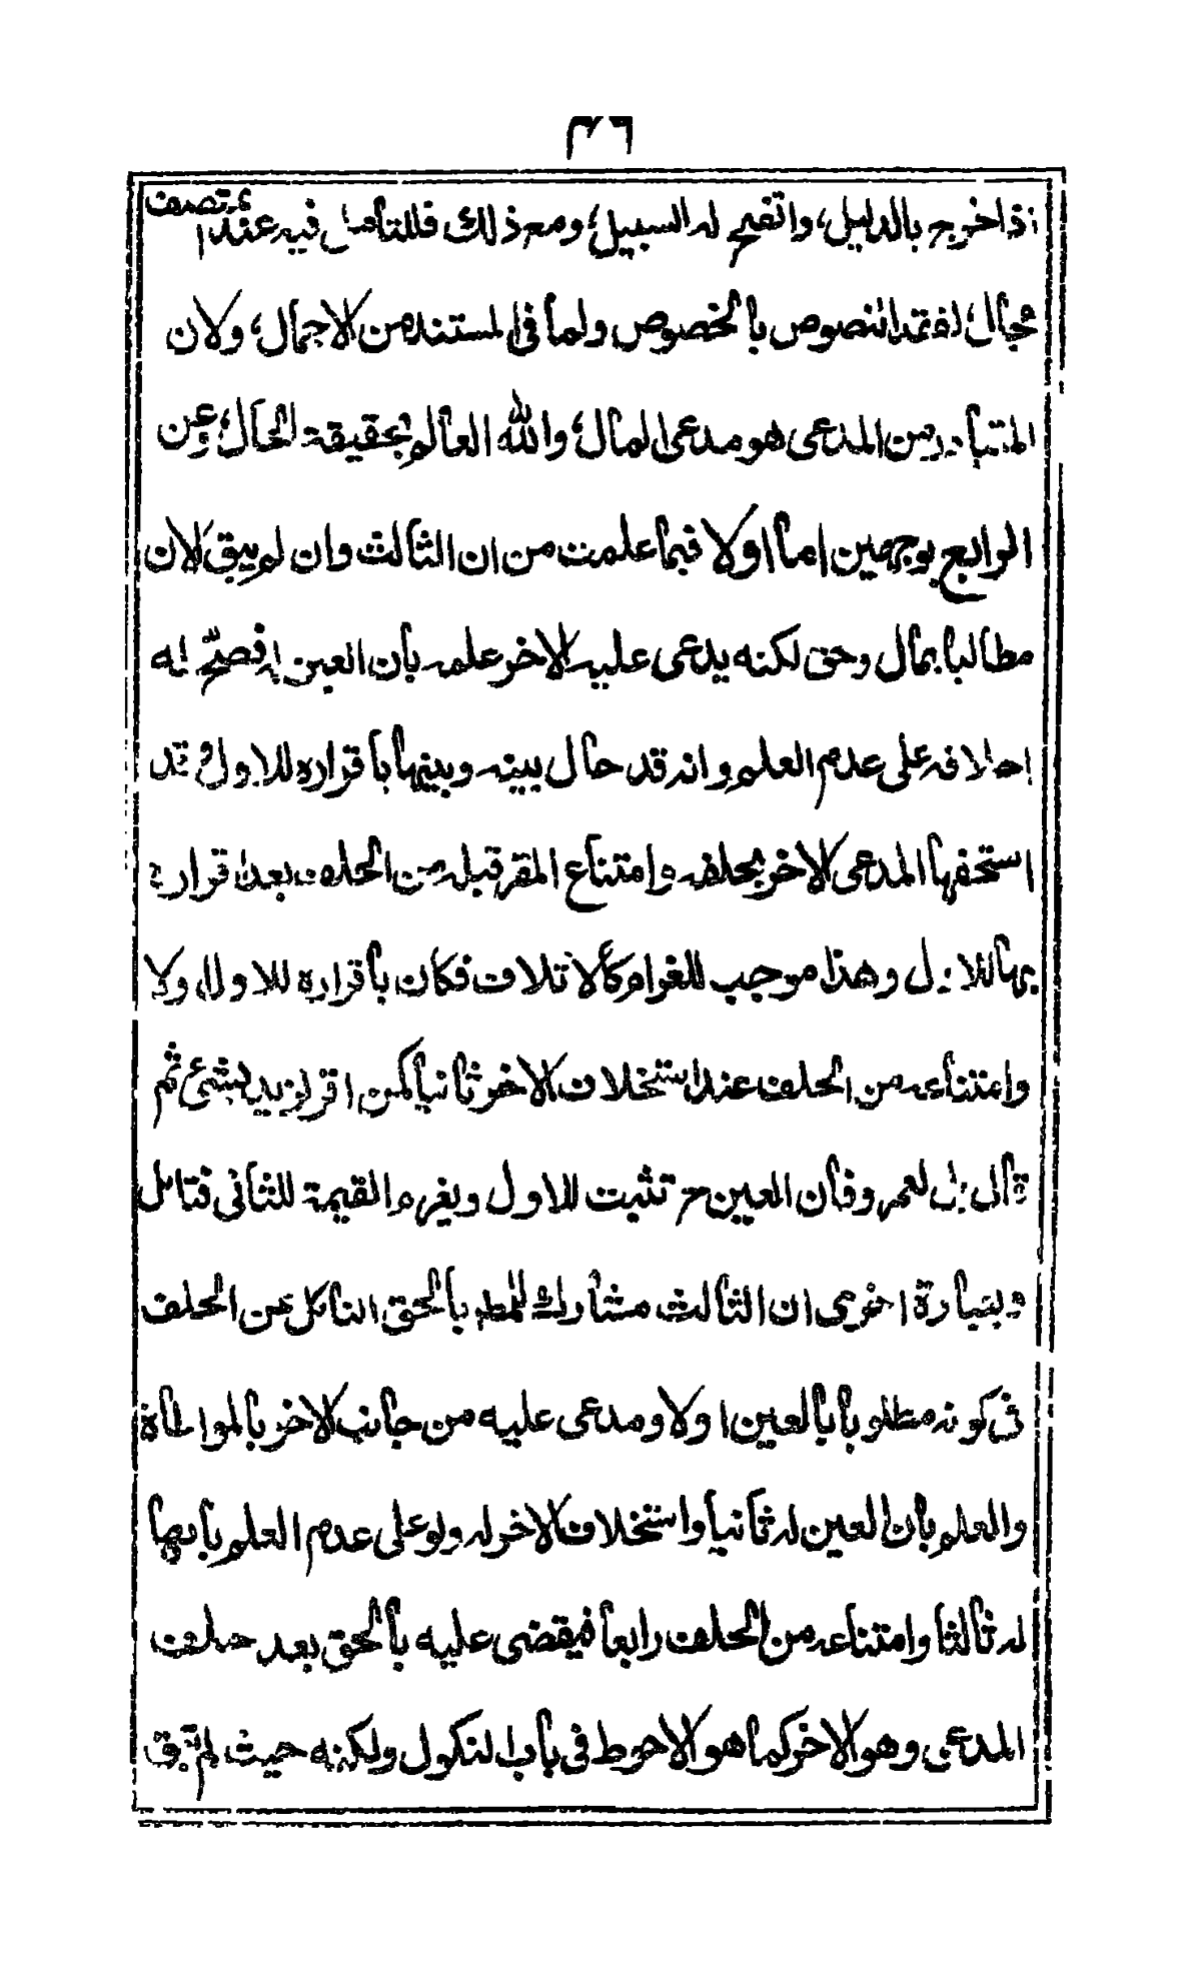 ٣٦
اذا خرج بالدليل، واتضح له السبيل؛ ومع ذلك فللتأمل فيه عند المنصف
مجال؛ لفقد النصوص بالخصوص ولما فى المستند من الاجمال؛ ولان
المتبادر من المدعى هو مدعى المال؛ والله العالم بحقيقة الحال؛ وعن
الرابع بوجهين اما اولا فبما علمت من ان الثالث وان لم يبق الان
مطالبا بمال وحق لكنه يدعى عليه الاخر علمه بان العين له فصح له
احلافه على عدم العلم وانه قد حال بينه وبينها باقراره للاول و قد
استحقها المدعى الاخر بحلفه وامتناع المقر قبله من الحلف بعد اقراره
بها للاول وهذا موجب للغرام كالاتلاف فكان باقراره للاول اولا
وامتناعه من الحلف عند استحلاف الاخر ثانيا كمن اقر لزيد بشئ ثم
قال بل لعمرو فان العين ح تثبت للاول ويغرم القيمة للثانى فتامل
وبعبارة اخرى ان الثالث مشارك للمط بالحق الناكل عن الحلف
فى كونه مطلوبا بالعين اولا ومدعى عليه من جانب الاخر بالمواطاة
والعلم بان العين له ثانيا واستحلاف الاخر له ولو على عدم العلم بانها
له ثالثا وامتناعه من الحلف رابعا فيقضى عليه بالحق بعد حلف
المدعى وهو الاخر كما هو الاحوط فى باب النكول ولكنه حيث لم تبق